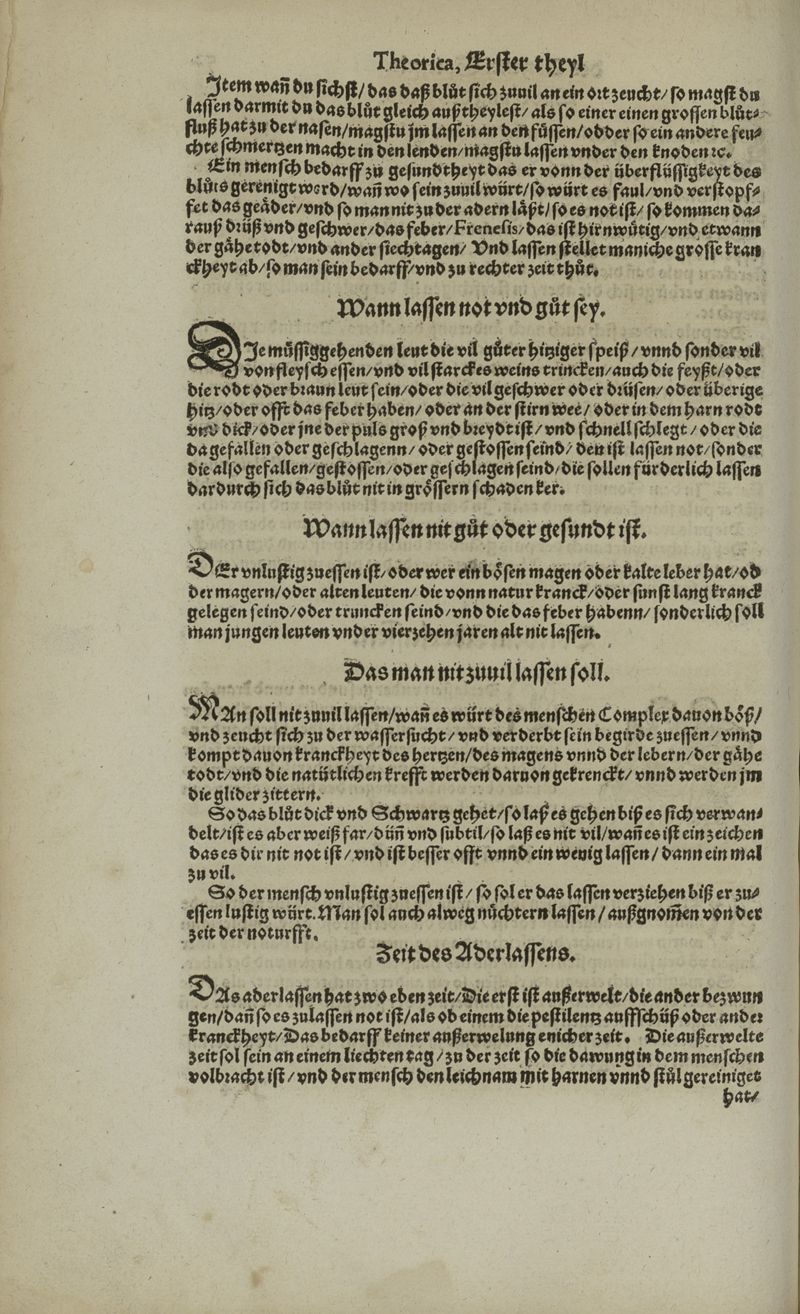 Theorica, Erster theyl
Item wañ du sichst/ das daß blůt sich zuuil an ein ort zeucht/ so magst du
lassen darmit du das blůt gleich außtheylest/ als so einer einen grossen blůt⸗
fluß hat zu der nasen/ magstu jm lassen an den füssen/ odder so ein andere feu⸗
chte schmertzen macht in den lenden/ magstu lassen vnder den knoden ꝛc.
Ein mensch bedarff zů gesundtheyt das er vonn der überflüssigkeyt des
blůts gerenigt werd/ wañ wo sein zuuil würt/ so würt es faul/ vnd verstopf⸗
fet das geäder/ vnd so man nit zu der adern läßt/ so es not ist/ so kommen da⸗
rauß drüß vnd geschwer/ das feber/ Frenesis/ das ist hirnwütig/ vnd etwann
der gähe todt/ vnd ander siechtagen/ Vnd lassen stellet maniche grosse kran
ckheyt ab/ so man sein bedarff/ vnd zu rechter zeit thůt.
Wann lassen not vnd gůt sey.
DJe müssiggehenden leut die vil gůter hitziger speiß / vnnd sonder vil
von fleysch essen/ vnd vil starckes weins trincken/ auch die feyßt/ oder
die rodt oder braun leut sein/ oder die vil geschwer oder drüsen/ oder überige
hitz/ oder offt das feber haben/ oder an der stirn wee/ oder in dem harn rodt
vnd dick/ oder jne der puls groß vnd breydt ist/ vnd schnell schlegt / oder die
da gefallen oder geschlagenn/ oder gestossen seind/ den ist lassen not/ sonder
die also gefallen/ gestossen/ oder geschlagen seind/ die sollen fürderlich lassen
dardurch sich das blůt nit in grössern schaden ker.
Wann lassen nit gůt oder gesundt ist.
DEr vnlustig zuessen ist/ oder wer ein bösen magen oder kalte leber hat/ od
der magern/ oder alten leuten/ die vonn natur kranck/ oder sunst lang kranck
gelegen seind/ oder truncken seind/ vnd die das feber habenn/ sonderlich soll
man jungen leuten vnder vierzehen jaren alt nit lassen.
Das man nit zuuil lassen soll.
MAn soll nit zuuil lassen/ wañ es würt des menschen Complex dauon böß/
vnd zeucht sich zu der wassersucht/ vnd verderbt sein begirde zuessen/ vnnd
kompt dauon kranckheyt des hertzen/ des magens vnnd der lebern/ der gähe
todt/ vnd die natütlichen krefft werden daruon gekrenckt/ vnnd werden jm
die glider zittern.
So das blůt dick vnd Schwartz gehet/ so laß es gehen biß es sich verwan⸗
delt/ ist es aber weiß far/ düñ vnd subtil/ so laß es nit vil/ wañ es ist ein zeichen
das es dir nit not ist / vnd ist besser offt vnnd ein wenig lassen / dann ein mal
zu vil.
So der mensch vnlustig zuessen ist/ so sol er das lassen verziehen biß er zu⸗
essen lustig würt. Man sol auch alweg nüchtern lassen / außgnom̃en von der
zeit der noturfft.
Zeit des Aderlassens.
DAs aderlassen hat zwo eben zeit/ Die erst ist außerwelt/ die ander bezwun
gen/ dañ so es zulassen not ist/ als ob einem die pestilentz auffschüß oder ander
kranckheyt/ Das bedarff keiner außerwelung enicher zeit. Die außerwelte
zeit sol sein an einem liechten tag / zu der zeit so die dawung in dem menschen
volbracht ist / vnd der mensch den leichnam mit harnen vnnd stůl gereiniget
hat/